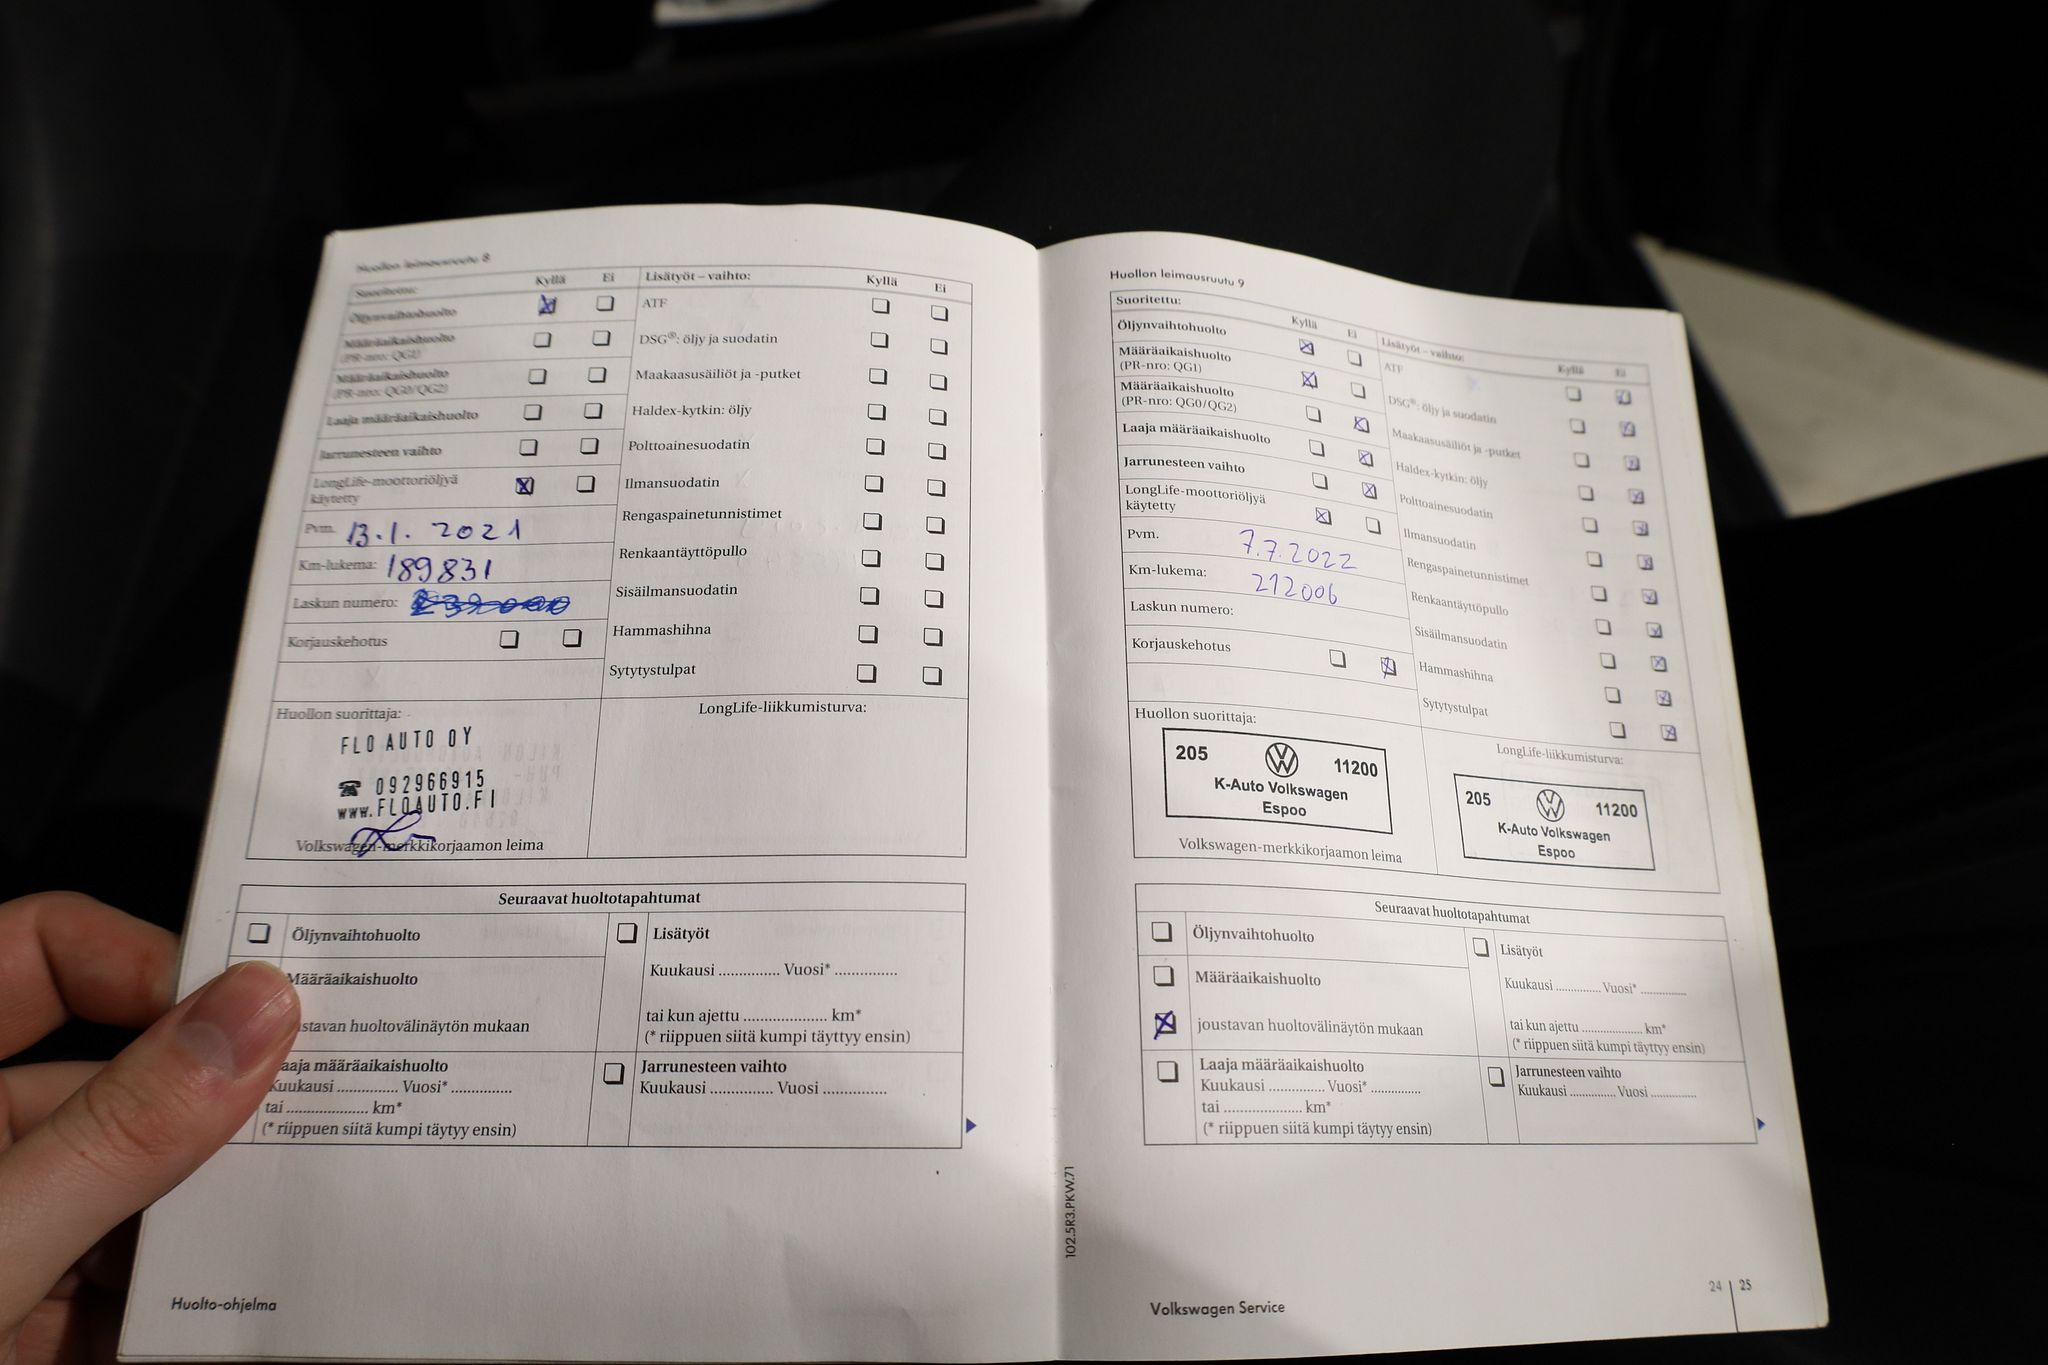 Huollon leimausruutu 8
Suoritettu: Kyllä Ei
Öljynvaihtohuolto
Määräaikaishuolto
(PR-nro: QG1)
Määräaikaishuolto
(PR-nro: QG0/QG2)
Laaja määräaikaishuolto
Jarrunesteen vaihto
LongLife-moottoriöljyä
käytetty
Pvm. 13.1.2021
Km-lukema: 189831
Laskun numero:
Korjauskehotus
Lisätyöt – vaihto: Kyllä Ei
ATF
DSG®: öljy ja suodatin
Maakaasusäiliöt ja -putket
Haldex-kytkin: öljy
Polttoainesuodatin
Ilmansuodatin
Rengaspainetunnistimet
Renkaantäyttöpullo
Sisäilmansuodatin
Hammashihna
Sytytystulpat
Huollon suorittaja:
FLO AUTO OY
☎ 092966915
www.FLOAUTO.FI
Volkswagen-merkkikorjaamon leima
LongLife-liikkumisturva:
Seuraavat huoltotapahtumat
Öljynvaihtohuolto
Määräaikaishuolto
stavan huoltovälinäytön mukaan
aaja määräaikaishuolto
Kuukausi .............. Vuosi* ..............
tai .................... km*
(* riippuen siitä kumpi täytyy ensin)
Lisätyöt
Kuukausi .............. Vuosi* ..............
tai kun ajettu .................... km*
(* riippuen siitä kumpi täyttyy ensin)
Jarrunesteen vaihto
Kuukausi .............. Vuosi ..............
Huolto-ohjelma
Huollon leimausruutu 9
Suoritettu: Kyllä Ei
Öljynvaihtohuolto
Määräaikaishuolto
(PR-nro: QG1)
Määräaikaishuolto
(PR-nro: QG0/QG2)
Laaja määräaikaishuolto
Jarrunesteen vaihto
LongLife-moottoriöljyä
käytetty
Pvm. 7.7.2022
Km-lukema: 212006
Laskun numero:
Korjauskehotus
Lisätyöt – vaihto: Kyllä Ei
ATF
DSG®: öljy ja suodatin
Maakaasusäiliöt ja -putket
Haldex-kytkin: öljy
Polttoainesuodatin
Ilmansuodatin
Rengaspainetunnistimet
Renkaantäyttöpullo
Sisäilmansuodatin
Hammashihna
Sytytystulpat
Huollon suorittaja:
205 11200
K-Auto Volkswagen
Espoo
Volkswagen-merkkikorjaamon leima
LongLife-liikkumisturva:
205 11200
K-Auto Volkswagen
Espoo
Seuraavat huoltotapahtumat
Öljynvaihtohuolto
Määräaikaishuolto
joustavan huoltovälinäytön mukaan
Laaja määräaikaishuolto
Kuukausi .............. Vuosi* ..............
tai .................... km*
(* riippuen siitä kumpi täytyy ensin)
Lisätyöt
Kuukausi .............. Vuosi* ..............
tai kun ajettu .................... km*
(* riippuen siitä kumpi täyttyy ensin)
Jarrunesteen vaihto
Kuukausi .............. Vuosi ..............
102.5R3.PKW.71
Volkswagen Service
24 25